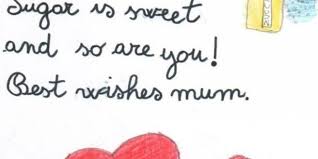 Sugar is sweet
and so are you!
Best wishes mum.